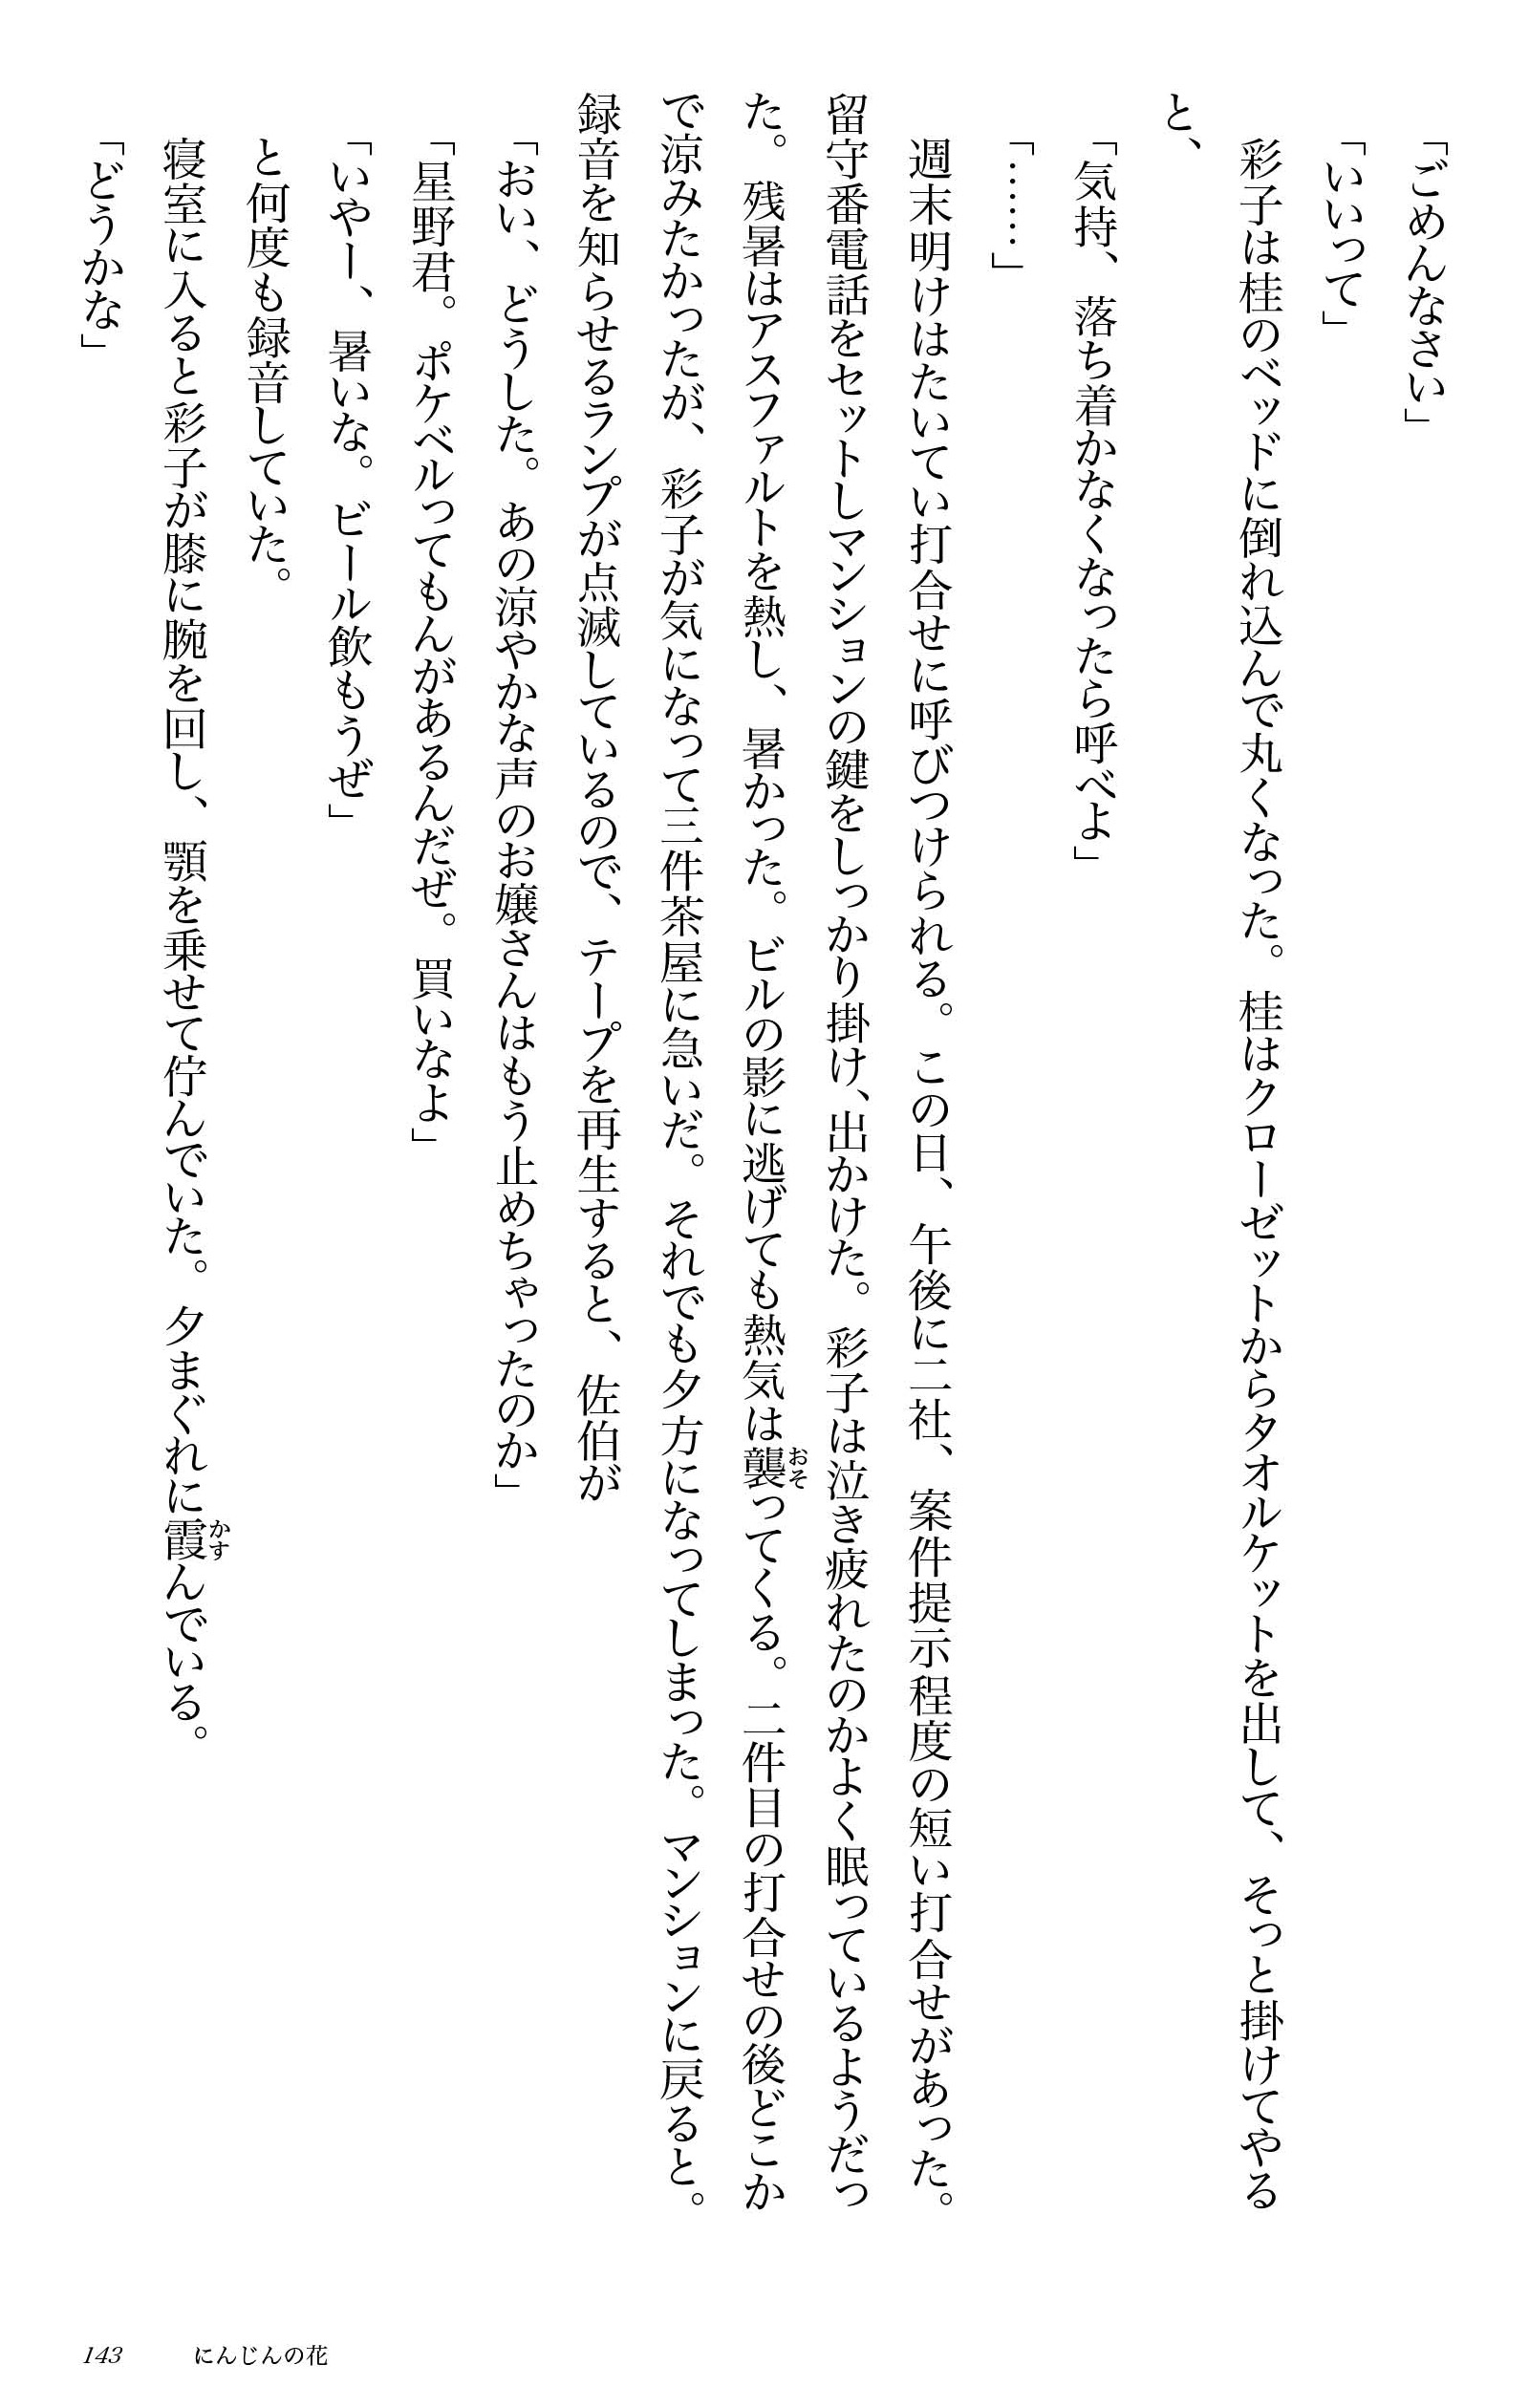 「ごめんなさい」
「いいって」
彩子は桂のベッドに倒れ込んで丸くなった。桂はクローゼットからタオルケットを出して、そっと掛けてやる
と、
「気持、落ち着かなくなったら呼べよ」
「……」
週末明けはたいてい打合せに呼びつけられる。この日、午後に二社、案件提示程度の短い打合せがあった。
留守番電話をセットしマンションの鍵をしっかり掛け、出かけた。彩子は泣き疲れたのかよく眠っているようだっ
た。残暑はアスファルトを熱し、暑かった。ビルの影に逃げても熱気は襲ってくる。二件目の打合せの後どこか
おそ
で涼みたかったが、彩子が気になって三件茶屋に急いだ。それでも夕方になってしまった。マンションに戻ると。
録音を知らせるランプが点滅しているので、テープを再生すると、佐伯が
「おい、どうした。あの涼やかな声のお嬢さんはもう止めちゃったのか」
「星野君。ポケベルってもんがあるんだぜ。買いなよ」
「いやー、暑いな。ビール飲もうぜ」
と何度も録音していた。
寝室に入ると彩子が膝に腕を回し、顎を乗せて佇んでいた。夕まぐれに霞んでいる。
かす
「どうかな」
143 にんじんの花